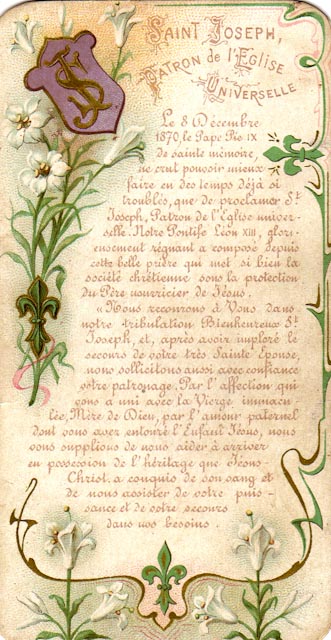 SAINT JOSEPH,
PATRON de l'EGLISE
UNIVERSELLE
Le 8 Décembre
1870, le Pape Pie IX
de sainte mémoire,
ne crut pouvoir mieux
faire en des temps déjà si
troublés, que de proclamer St
Joseph, Patron de l'Eglise univer-
selle. Notre Pontife Léon XIII, glori-
eusement régnant a composé depuis
cette belle prière qui met si bien la
société chrétienne sous la protection
du Père nourricier de Jésus.
« Nous recourons à Vous dans
notre tribulation Bienheureux St
Joseph, et, après avoir imploré le
secours de votre très Sainte Epouse,
nous sollicitons aussi avec confiance
votre patronage. Par l'affection qui
vous a uni avec la Vierge immacu-
lée, Mère de Dieu, par l'amour paternel
dont vous avez entouré l'Enfant Jésus, nous
vous supplions de nous aider à arriver
en possession de l'héritage que Jésus-
Christ a conquis de son sang et
de nous assister de votre puis-
sance et de votre secours
dans nos besoins.